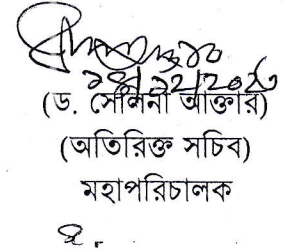 (ড. সেলিনা আক্তার)
(অতিরিক্ত সচিব)
মহাপরিচালক